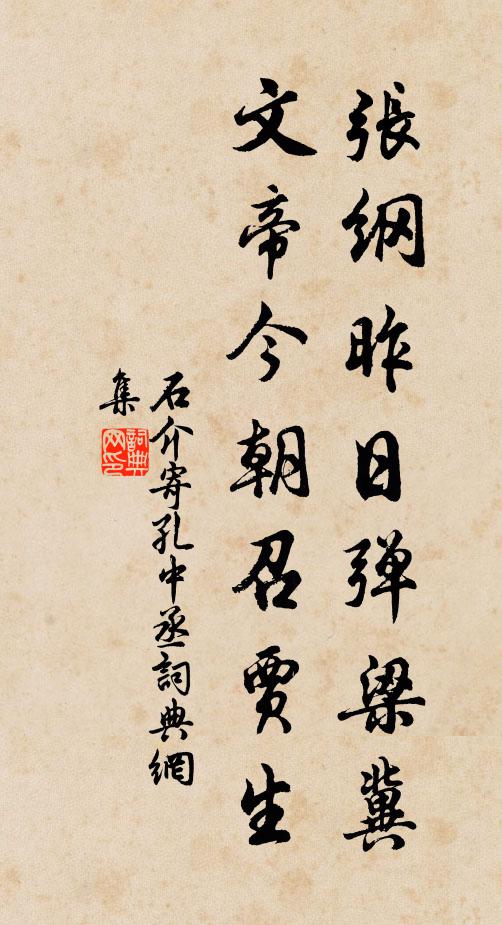 張纲昨日弹梁冀
文帝今朝召賈生
石介寄孔中丞詞典網
集
詞典網印